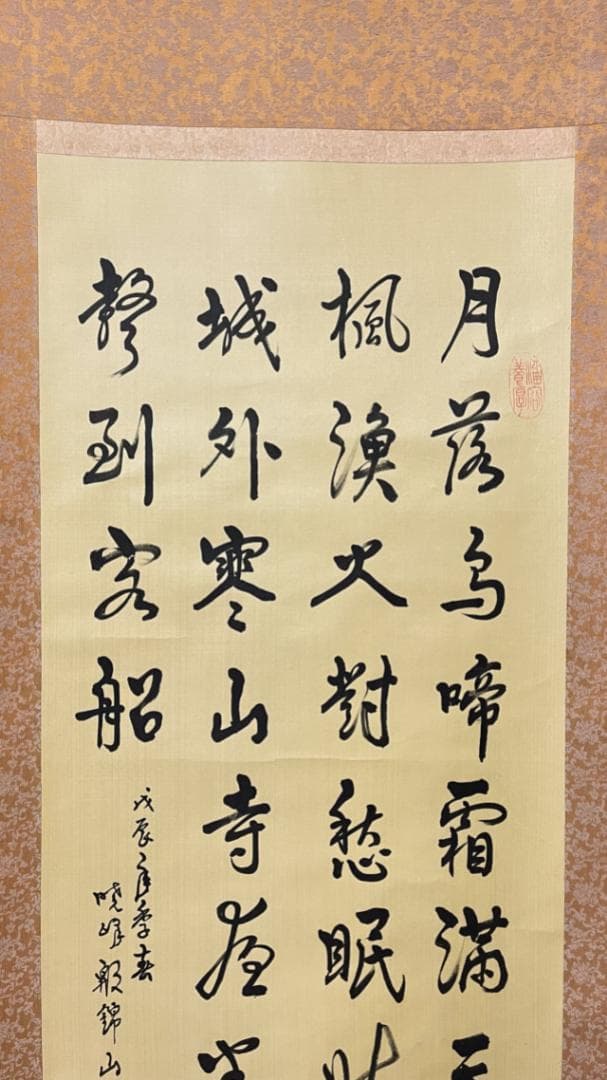 月落烏啼霜滿天
楓漁火對愁眠姑
城外寒山寺夜半
聲到客船
戊辰年季春
曉峰錦山